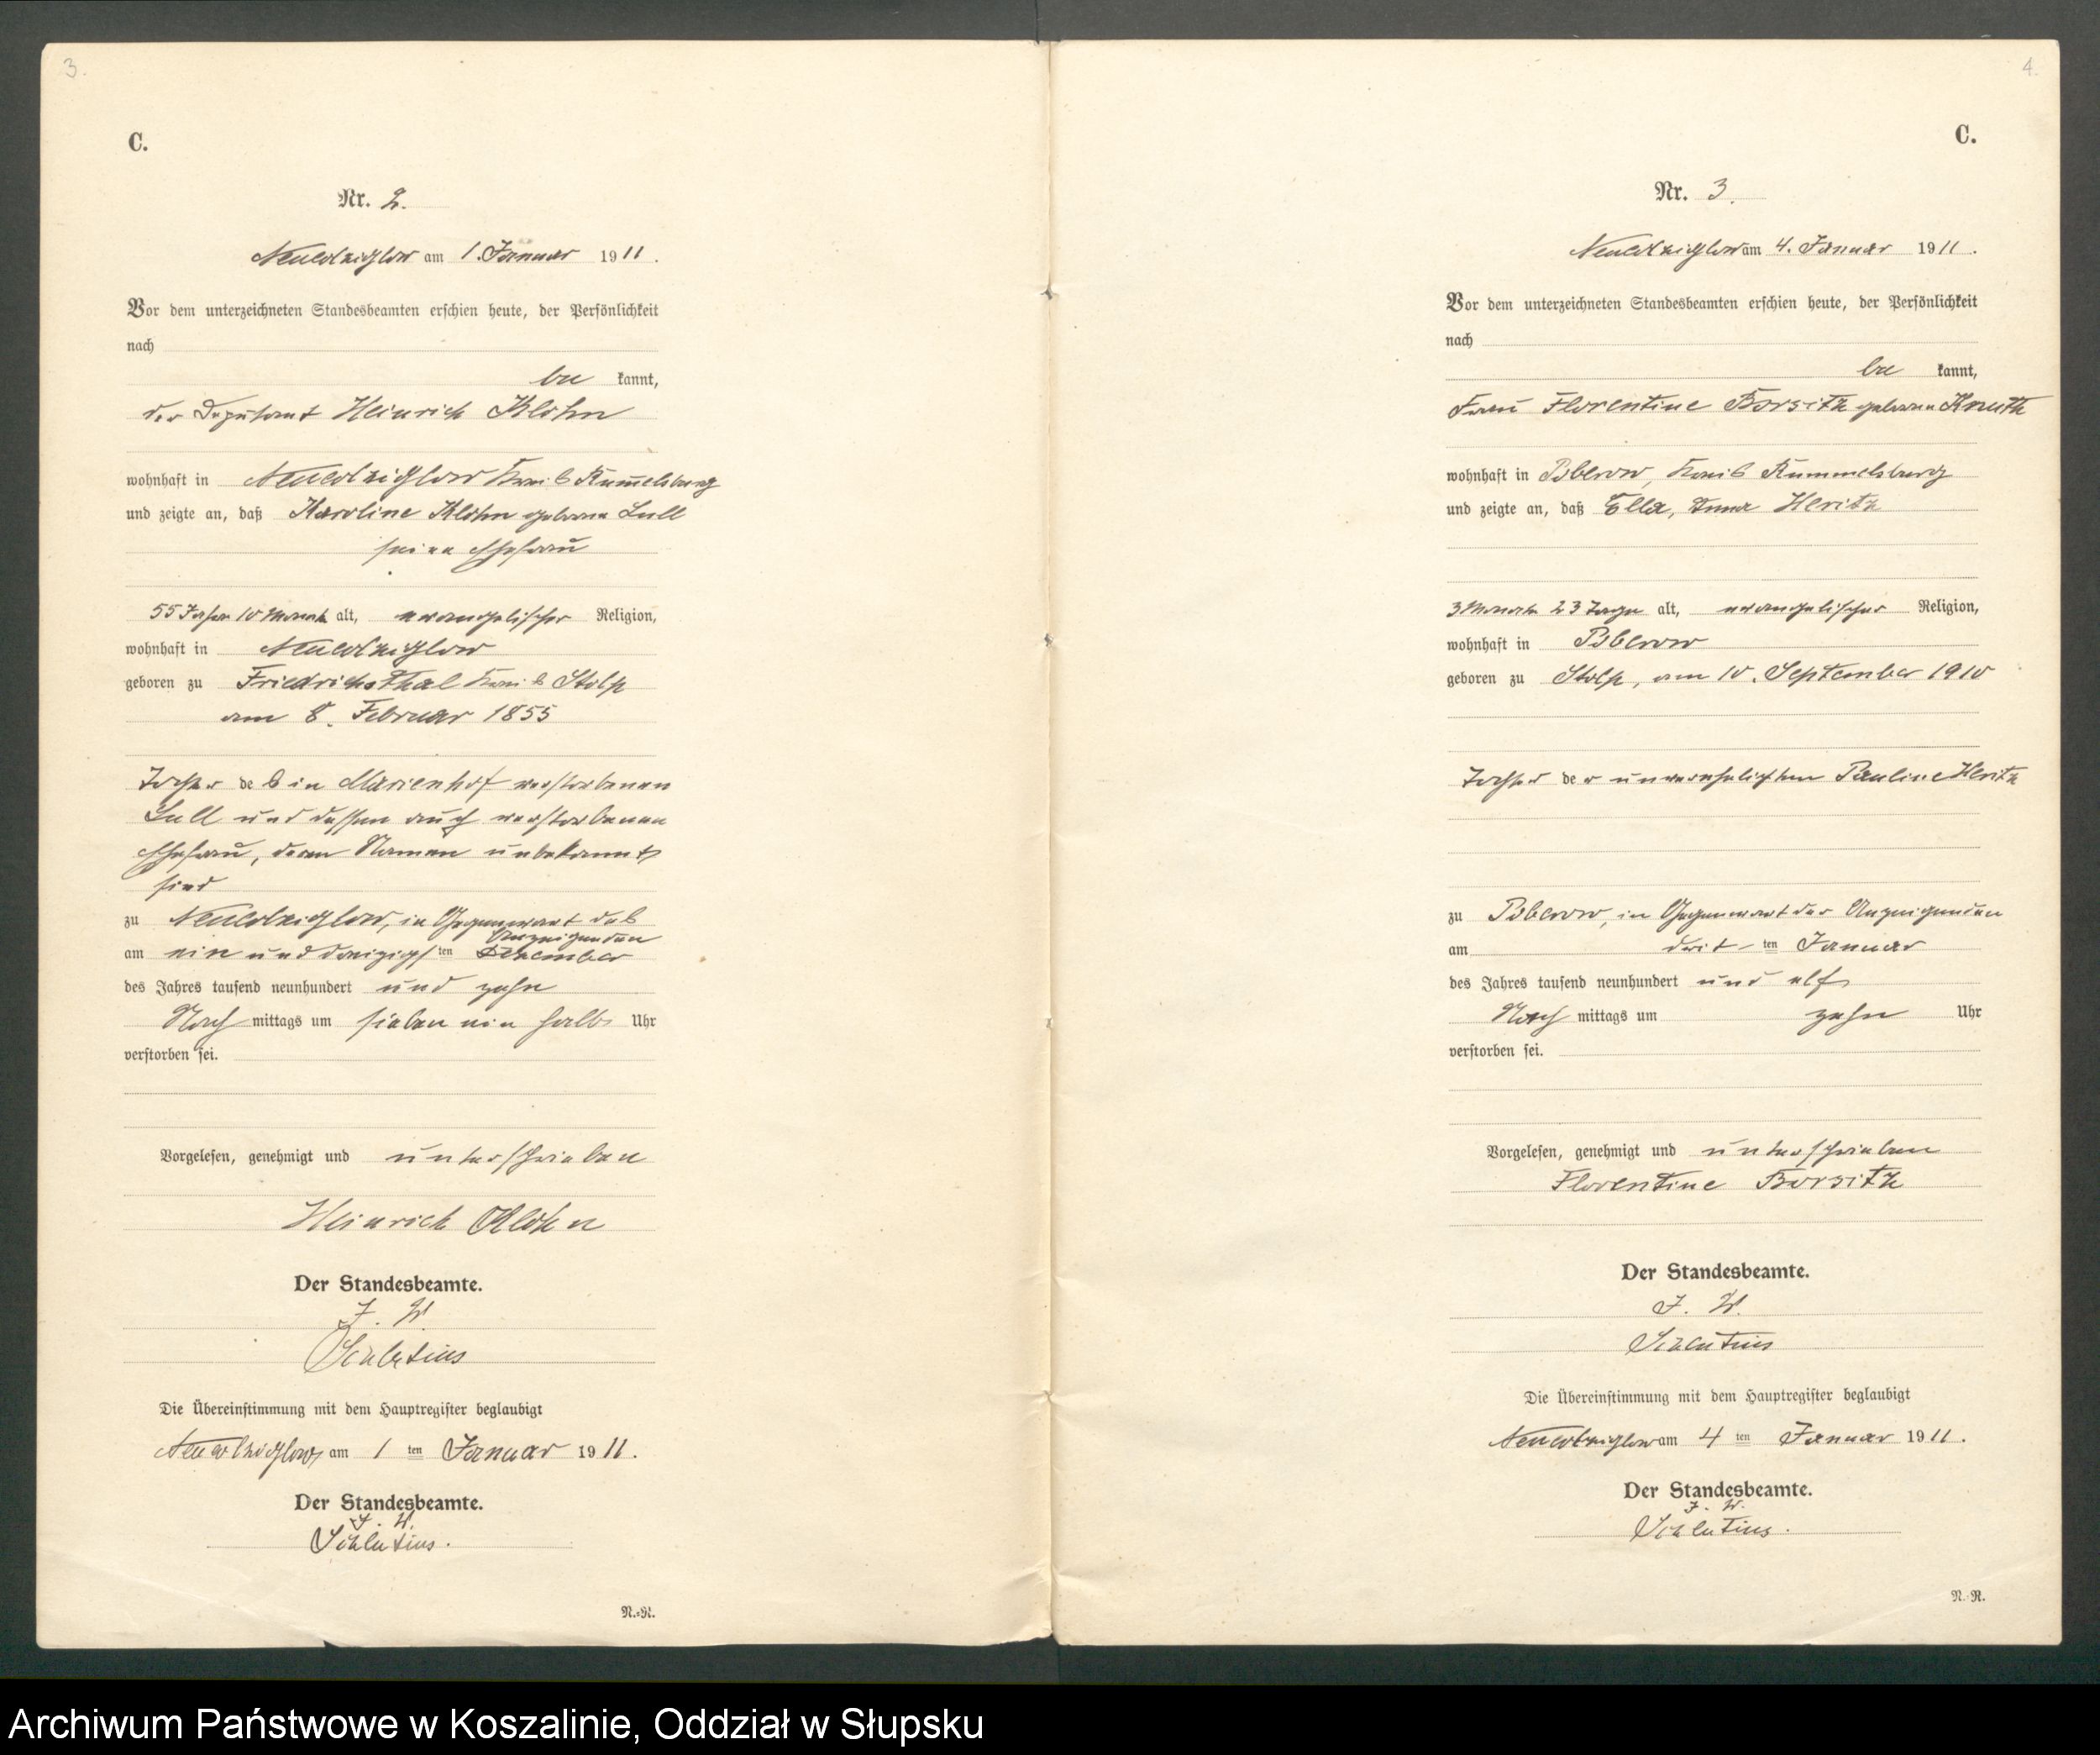 3.
C.
Nr. 2.
Neukolziglow am 1. Januar 1911.
Vor dem unterzeichneten Standesbeamten erschien heute, der Persönlichkeit
nach
be kannt,
der Deputant Heinrich Klohn
wohnhaft in Neukolziglow Kreis Rummelsburg
und zeigte an, daß Karoline Klohn geborene Lull
seine Ehefrau
55 Jahre 10 Monate alt, evangelischer Religion,
wohnhaft in Neukolziglow
geboren zu Friedrichsthal Kreis Stolp
am 8. Februar 1855
Tochter des in Marienhof verstorbenen
Lull und dessen auch verstorbenen
Ehefrau, deren Namen unbekannt
sind
zu Neukolziglow, in Gegenwart des
Anzeigenden
am ein und dreizigsten Dezember
des Jahres tausend neunhundert und zehn
Nach mittags um sieben ein halb Uhr
verstorben sei.
Vorgelesen, genehmigt und unterschrieben
Heinrich Klohn
Der Standesbeamte.
J. V.
Schlutius
Die Übereinstimmung mit dem Hauptregister beglaubigt
Neukolziglow, am 1 ten Januar 1911.
Der Standesbeamte.
J. V.
Schlutius.
N.=R.
4.
C.
Nr. 3.
Neukolziglow am 4. Januar 1911.
Vor dem unterzeichneten Standesbeamten erschien heute, der Persönlichkeit
nach
be kannt,
Frau Florentine Borsitz geborene Knuth
wohnhaft in Poberow, Kreis Rummelsburg
und zeigte an, daß Ella, Anna
3 Monate 23 Tage alt, evangelischer Religion,
wohnhaft in Poberow
geboren zu Stolp, am 10. September 1910
Tochter der unverehelichten Pauline
zu Poberow, in Gegenwart der Anzeigenden
am drit ten Januar
des Jahres tausend neunhundert und elf
Nach mittags um zehn Uhr
verstorben sei.
Vorgelesen, genehmigt und unterschrieben
Florentine Borsitz
Der Standesbeamte.
J. V.
Schlutius
Die Übereinstimmung mit dem Hauptregister beglaubigt
Neukolziglow am 4 ten Januar 1911.
Der Standesbeamte.
J. V.
Schlutius.
N.=R.
Archiwum Państwowe w Koszalinie, Oddział w Słupsku